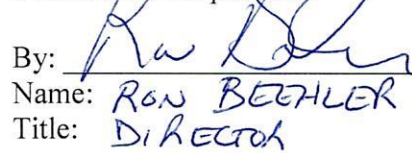 By:
Name: RON BEEHLER
Title: DIRECTOR